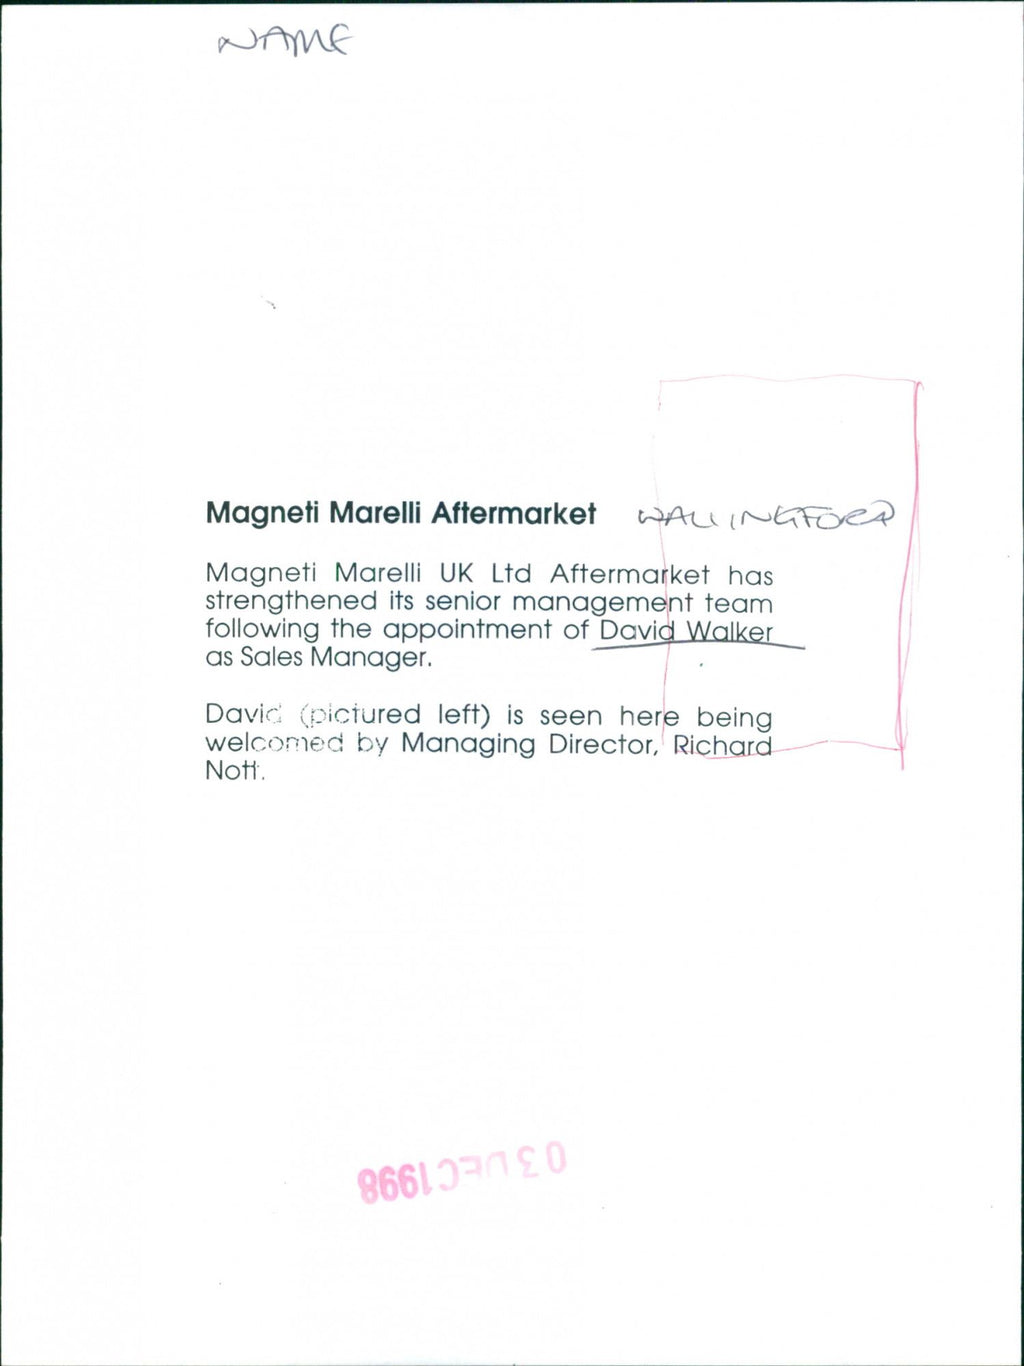 NAME
Magneti Marelli Aftermarket WALLINGFORD
Magneti Marelli UK Ltd Aftermarket has
strengthened its senior management team
following the appointment of David Walker
as Sales Manager.
David (pictured left) is seen here being
welcomed by Managing Director, Richard
Nott.
03 DEC 1998